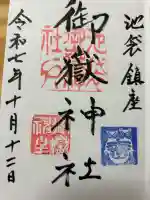 池袋鎮座
御嶽神社
令和七年十月十二日